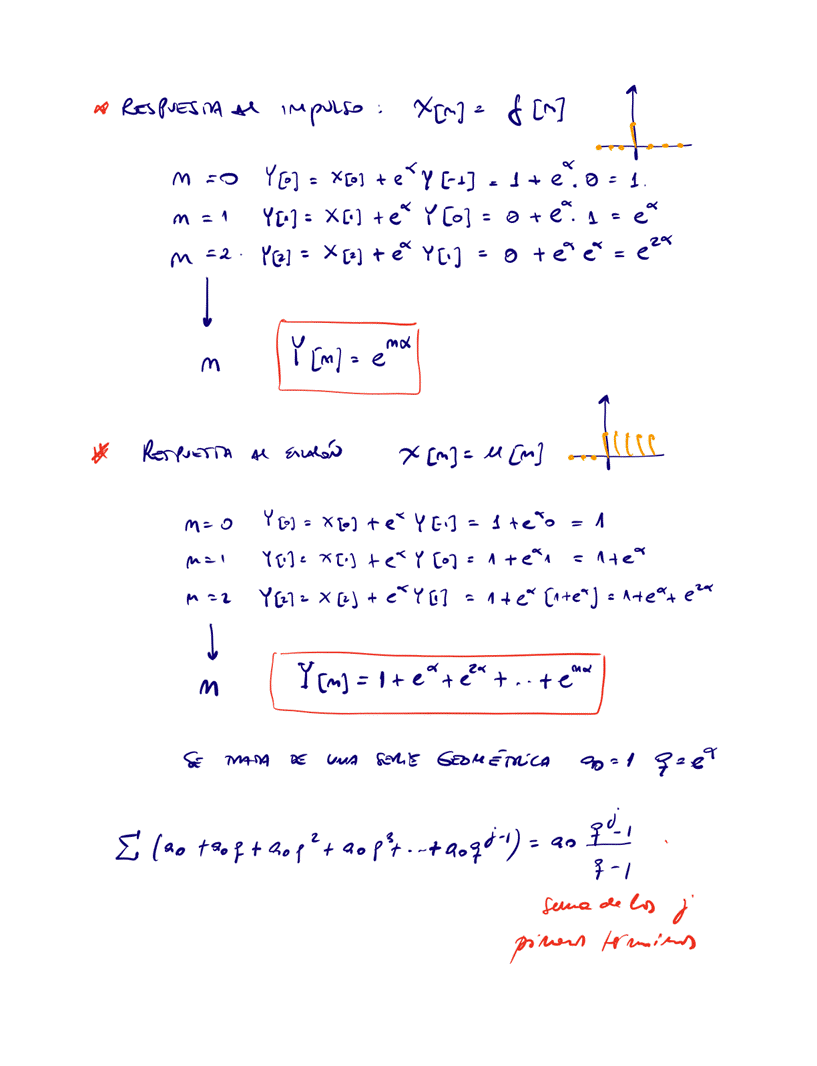 RESPUESTA AL IMPULSO: X[n] = δ[n]
n=0 Y[0] = X[0] + e^α Y[-1] = 1 + e^α . 0 = 1.
n=1 Y[1] = X[1] + e^α Y[0] = 0 + e^α . 1 = e^α
n=2. Y[2] = X[2] + e^α Y[1] = 0 + e^α e^α = e^2α
↓
n Y[n] = e^nα
RESPUESTA AL ESCALÓN X[n] = u[n]
n=0 Y[0] = X[0] + e^α Y[-1] = 1 + e^α 0 = 1
n=1 Y[1] = X[1] + e^α Y[0] = 1 + e^α 1 = 1+e^α
n=2 Y[2] = X[2] + e^α Y[1] = 1+e^α [1+e^α] = 1+e^α+ e^2α
↓
n Y[n] = 1 + e^α + e^2α + ... + e^nα
SE TRATA DE UNA SERIE GEOMÉTRICA a0=1 q=e^α
Σ (a0 + a0 q + a0 q^2 + a0 q^3 + ... + a0 q^j-1) = a0 (q^j - 1)/(q - 1)
suma de los j
primeros terminos